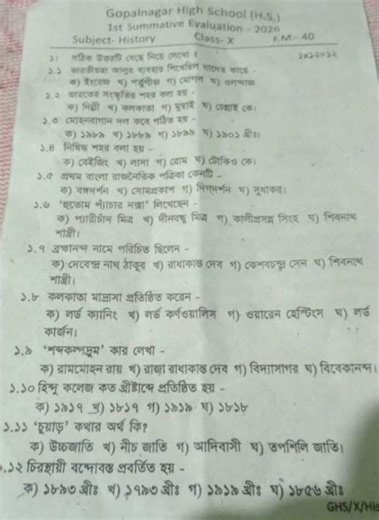 Gopalnagar High School (H.S.)
1st Summative Evaluation - 2026
Subject- History Class- X F.M- 40
১। সঠিক উত্তরটি বেছে নিয়ে লেখো : ১x১২=১২
১.১ ভারতীয়রা আলুর ব্যবহার শিখেছিল যাদের কাছে -
ক) ইংরেজ খ) পর্তুগীজ গ) মোগল ঘ) ওলন্দাজ
১.২ ভারতের সংস্কৃতির শহর বলা হয় -
ক) দিল্লী খ) কলকাতা গ) মুম্বাই ঘ) চেন্নাই কে।
১.৩ মোহনবাগান দল কবে গঠিত হয় -
ক) ১৯৮৯ খ) ১৮৮৯ গ) ১৮৯৯ ঘ) ১৯০১ খ্রীঃ।
১.৪ নিষিদ্ধ শহর বলা হয় -
ক) বেইজিং খ) লাসা গ) রোম ঘ) টোকিও কে।
১.৫ প্রথম বাংলা রাজনৈতিক পত্রিকা কোনটি -
ক) বঙ্গদর্শন খ) সোমপ্রকাশ গ) দিগদর্শন ঘ) সুধাকর।
১.৬ 'হুতোম প্যাঁচার নক্সা' লিখেছেন -
ক) প্যারীচাঁদ মিত্র খ) দীনবন্ধু মিত্র গ) কালীপ্রসন্ন সিংহ ঘ) শিবনাথ
শাস্ত্রী।
১.৭ ব্রহ্মানন্দ নামে পরিচিত ছিলেন -
ক) দেবেন্দ্র নাথ ঠাকুর খ) রাধাকান্ত দেব গ) কেশবচন্দ্র সেন ঘ) শিবনাথ
শাস্ত্রী।
১.৮ কলকাতা মাদ্রাসা প্রতিষ্ঠিত করেন -
ক) লর্ড ক্যানিং খ) লর্ড কর্ণওয়ালিস গ) ওয়ারেন হেস্টিংস ঘ) লর্ড
কার্জন।
১.৯ 'শব্দকল্পদ্রুম' কার লেখা -
ক) রামমোহন রায় খ) রাজা রাধাকান্ত দেব গ) বিদ্যাসাগর ঘ) বিবেকানন্দ।
১.১০ হিন্দু কলেজ কত খ্রীষ্টাব্দে প্রতিষ্ঠিত হয় -
ক) ১৯১৭ খ) ১৮১৭ গ) ১৯১৯ ঘ) ১৮১৮
১.১১ 'চুয়াড়' কথার অর্থ কি?
ক) উচ্চজাতি খ) নীচ জাতি গ) আদিবাসী ঘ) তপশিলি জাতি।
.১২ চিরস্থায়ী বন্দোবস্ত প্রবর্তিত হয় -
ক) ১৮৯৩ খ্রীঃ খ) ১৭৯৩ খ্রীঃ গ) ১৯১৯ খ্রীঃ ঘ) ১৮৫৬ খ্রীঃ
GHS/X/His